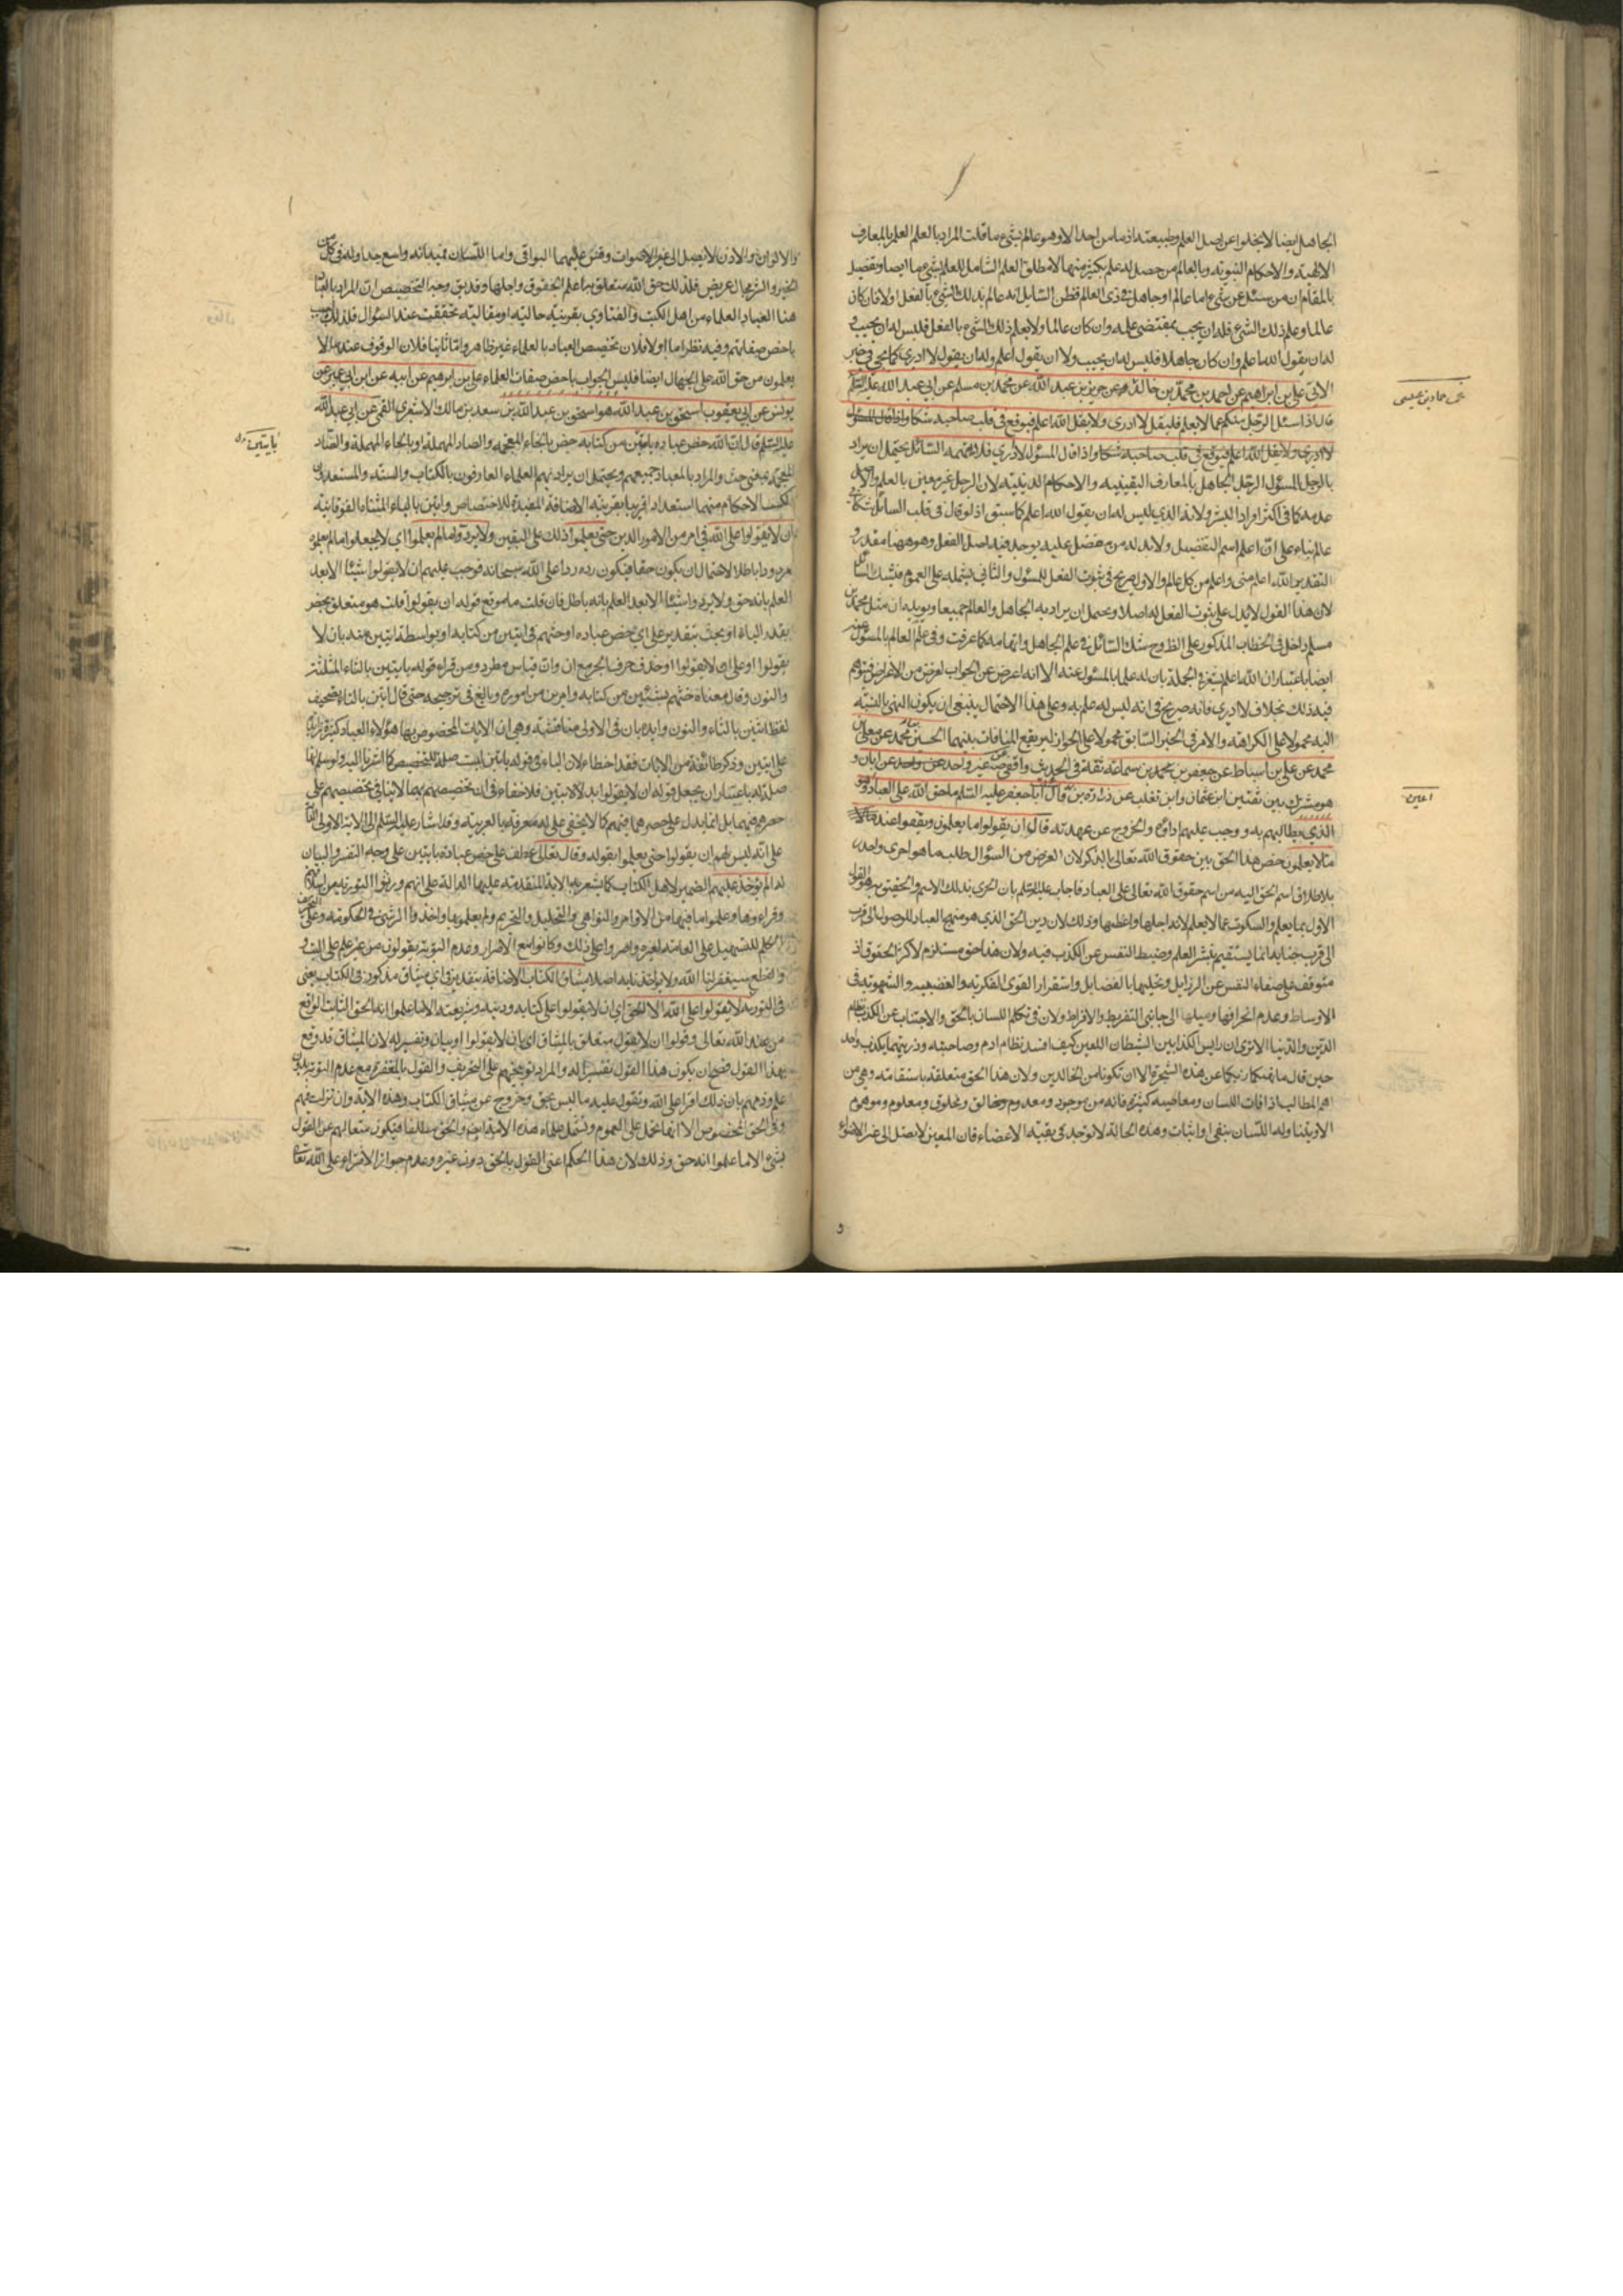 الجاهل ايضا لا يخلوا عن اصل العلم وطبيعته اذ ما من احد الا وهو عالم بشئ ما قلت المراد بالعلم العلم بالمعارف
الالهية والاحكام النبوية وبالعالم من حصل له علم بكثير منهما لا مطلق العلم الشامل للعلم بشئ ما ايضا وتفصيل
المقام ان من سئل عن شئ اما عالم او جاهل وذى العالم فظن السايل انه عالم بذلك الشئ بالفعل اولا فان كان
عالما وعلم ذلك الشئ فله ان يجيب بمقتضى علمه وان كان عالما ولا يعلم ذلك الشئ بالفعل فليس له ان يجيب و
له ان يقول الله اعلم وان كان جاهلا فليس له ان يجيب ولا ان يقول الله اعلم وله ان يقول لا ادرى كما يجئ فى خبر
الاتى على بن ابراهيم عن احمد بن محمد بن خالد عن حريز بن عبد الله عن محمد بن مسلم عن ابي عبد الله عليه السلم
قال اذا سئل الرجل منكم عما لا يعلم فليقل لا ادرى ولا يقل الله اعلم فيوقع فى قلب صاحبه شكا واذا قال المسئول
لا ادرى ولا يقل الله اعلم فيوقع فى قلب صاحبه شكا واذا قال المسئول لا ادري فلا يتهمه السائل يحتمل ان يراد
بالرجل المسئول الرجل الجاهل بالمعارف اليقينيه والاحكام الدينية لان الرجل غير معين بالعلم والاصل
عدمه كما فى اكثر افراد البشر ولانه الذي ليس له ان يقول الله اعلم كما سبق اذ لو قال فى قلب السائل شكا
عالم بناء على ان اعلم اسم التفضيل ولا بد له من مفضل عليه يوجد فيه اصل الفعل وهو ههنا مقدر و
التقدير الله اعلم منى واعلم من كل عالم والاول صريح فى ثبوت الفعل للمسئول والثاني يشمله على العموم فيشك السائل
لان هذا القول لا يدل على ثبوت الفعل له اصلا ويحتمل ان يراد به الجاهل والعالم جميعا ويويده ان مثل محمد بن
مسلم داخل فى الخطاب المذكور على الظ وح شك السائل فى علم الجاهل واتهامه كما عرفت وفى علم العالم بالمسئول عنه
ايضا باعتبار ان الله اعلم يشعر فى الجملة بان له علما بالمسئول عنه الا انه اعرض عن الجواب لغرض من الاغراض فيتهم
فيه ذلك بخلاف لا ادري فانه صريح فى انه ليس له علم به وعلى هذا الاحتمال ينبغى ان يكون النهى بالنسبة
اليه محمولا على الكراهة والامر فى الخبر السابق محمولا على الجواز ليرتفع المنافات بينهما الحسين بن محمد عن معلى بن
محمد عن على بن اسباط عن جعفر بن محمد بن سماعة ثقة فى الحديث واقفى عن غير واحد عن ابان و
هو مشترك بين ثقتين ابن عثمان وابن تغلب عن زرارة بن قال سألت ابا جعفر عليه السلم ما حق الله على العباد
الذي يطالبهم به ووجب عليهم اداؤه والخروج عن عهدته قال ان يقولوا ما يعلمون ويقفوا عند
ما لا يعلمون خص هذا الحق بين حقوق الله تعالى بالذكر لان الغرض من السؤال طلب ما هو احرى واجدر
باطلاق اسم الحق اليه من اسم حقوق الله تعالى على العباد فاجاب عليه السلم بان الحرى بذلك الاسم والحقيق به هو القول
الاول بما يعلم والسكوت عما لا يعلم لانه اجلها واعظمها وذلك لان دين الحق الذي هو منهج العباد للوصول الى قرب
الى قرب جنابه انما يستقيم بنشر العلم وضبط النفس عن الكذب فيه ولان هذا حق مستلزم لاكثر الحقوق اذ
متوقف على صفاء النفس عن الرزايل وتحليها بالفضايل واستقرار القوى الفكرية والغضبيه والشهوية فى
الاوساط وعدم انحرافها وميلها الى جانبى التفريط والافراط ولان فى تكلم اللسان بالحق والاجتناب عن الكذب نظام
الدين والدنيا الا ترى ان رايس الكذابين الشيطان اللعين كيف افسد نظام ادم وصاحبته وذريتهما بكذب واحد
حين قال ما نهيكما ربكما عن هذه الشجرة الا ان تكونا من الخالدين ولان هذا الحق متعلقه باستقامته وهى من
اهم المطالب اذ افات اللسان ومعاصيه كثيرة فانه من موجود ومعدوم وخالق ومخلوق ومعلوم وموهوم
الا ويتناوله اللسان بنفى او اثبات وهذه الحالة لا توجد فى بقية الاعضاء فان المعين لا يصل الى غير الاضواء
عن حماد بن عيسى
اعين
و
والالوان والاذن لا يصل الى غير الاصوات وقس عليهما البواقى واما اللسان فميدانه واسع جدا وله فى كل من
الخير والشر مجال عريض فلذلك حق الله متعلق به اعلم الحقوق واجلها وقد يق وجه التخصيص ان المراد بالعباد
هنا العباد العلماء من اهل الكتب والفتاوى بقرينة حالية او مقالية تحققت عند السؤال فلذلك اجيب
باخص صفاتهم وفيه نظر اما اولا فلان تخصيص العباد بالعلماء غير ظاهر واما ثانيا فلان الوقوف عند ما لا
يعلمون من حق الله على الجهال ايضا فليس الجواب باخص صفات العلماء على بن ابراهيم عن ابيه عن ابن ابي عمير عن
يونس عن ابي يعقوب اسحق بن عبد الله هو اسحق بن عبد الله بن سعد بن مالك الاشعري القمى عن ابي عبد الله
عليه السلم قال ان الله خص عباده بايتين من كتابه خص بالخاء المعجمه والصاد المهملة او بالحاء المهملة والضاد
المعجمة بمعنى حث والمراد بالعباد جميعهم ويحتمل ان يراد بهم العلماء العارفون بالكتاب والسنة والمستعدون
لكسب الاحكام منهما استعدادا قريبا بقرينة الاضافة المفيدة للاختصاص وايتين بالياء المثناة الفوقانية
ان لا يقولوا على الله فى امر من الامور الدين حتى يعلموا ذلك على اليقين ولا يردوا ما لم يعلموا اي لا يجعلوا ما لم يعلموه
مردودا باطلا لاحتمال ان يكون حقا فيكون رده ردا على الله سبحانه فوجب عليهم ان لا يقولوا شيئا الا بعد
العلم بانه حق ولا يردوا شيئا الا بعد العلم بانه باطل فان قلت ما موقع قوله ان يقولوا قلت هو متعلق بخص
بقدر الباء او بحث بتقدير على اي خص عباده او حثهم فى ايتين من كتابه او بواسطة ايتين منه بان لا
يقولوا او على ان لا يقولوا وحذف حرف الجر مع ان وان قياس مطرد ومن قراء قوله بايتين بالثاء المثلثة
والنون وقال معناه خصهم بشيئين من كتابه وامرين من اموره وبالغ فى ترجيحه حتى قال ايتين بالتاء تصحيف
لفظ اثنين بالثاء والنون وايده بان فى الاولى مناقشة وهى ان الايات المخصوص بها هؤلاء العباد كثيرة زائدة
على ايتين وذكر طائفة من الايات فقد اخطاء لان الباء فى قوله بايتين ليست صلة للتخصيص كما اشرنا اليه ولو سلم انها
صلة له باعتبار ان يجعل قوله ان لا يقولوا بدلا لايتين فلا خفاء فى ان تخصيصهم بهما لا ينافى تخصيصهم على
حصرهم فيهما بل انما يدل على حصرهما فيهم كما لا يخفى على له معرفة بالعربية وقد اشار عليه السلم الى الاية الاولى الدالة
على انه ليس لهم ان يقولوا حتى يعلموا بقوله وقال تعالى عطف على خص عباده بايتين على وجه التفسير والبيان
له الم يؤخذ عليهم الضمير لاهل الكتاب كما يشعر به الاية المتقدمة عليها الدالة على انهم ورثوا التورية من اسلافهم
وقراءوها وعلموا ما فيها من الاوامر والنواهى والتحليل والتحريم ولم يعملوا بها واخذوا الرشى فى الحكومة وعلى تحريف
الكلم للتسهيل على العامة لغيره واصروا على ذلك وكانوا مع الاصرار وعدم التوبة يقولون من غير علم على البت و
والقطع سيغفر لنا الله ولا يؤاخذنا به اصلا ميثاق الكتاب الاضافة بتقدير فى اي ميثاق مذكور فى الكتاب يعنى
فى التورية ان لا يقولوا على الله الا الحق اي ان لا يقولوا على كتابه ودينه وشريعته الا ما علموا انه الحق الثابت الواقع
من عند الله تعالى وقولوا ان لا يقول متعلق بالميثاق اي بان لا يقولوا او بيان وتفسير له لان الميثاق قد وقع
بهذا القول فصح ان يكون هذا القول تفسيرا له والمراد توبيخهم على التحريف والقول بالمغفرة مع عدم التوبة بدون
علم وذمهم بان ذلك افترا على الله وتقول عليه ما ليس بحق وخروج عن ميثاق الكتاب وهذه الاية وان نزلت فيهم
وفى الحق المخصوص الا انها تحمل على العموم وتشمل علماء هذه الامة ايضا والحق مطلقا فيكون منعا لهم عن القول
بشئ الا ما علموا انه حق وذلك لان هذا الحكم اعنى القول بالحق دون غيره وعدم جواز الافتراء على الله تعالى
بايتين